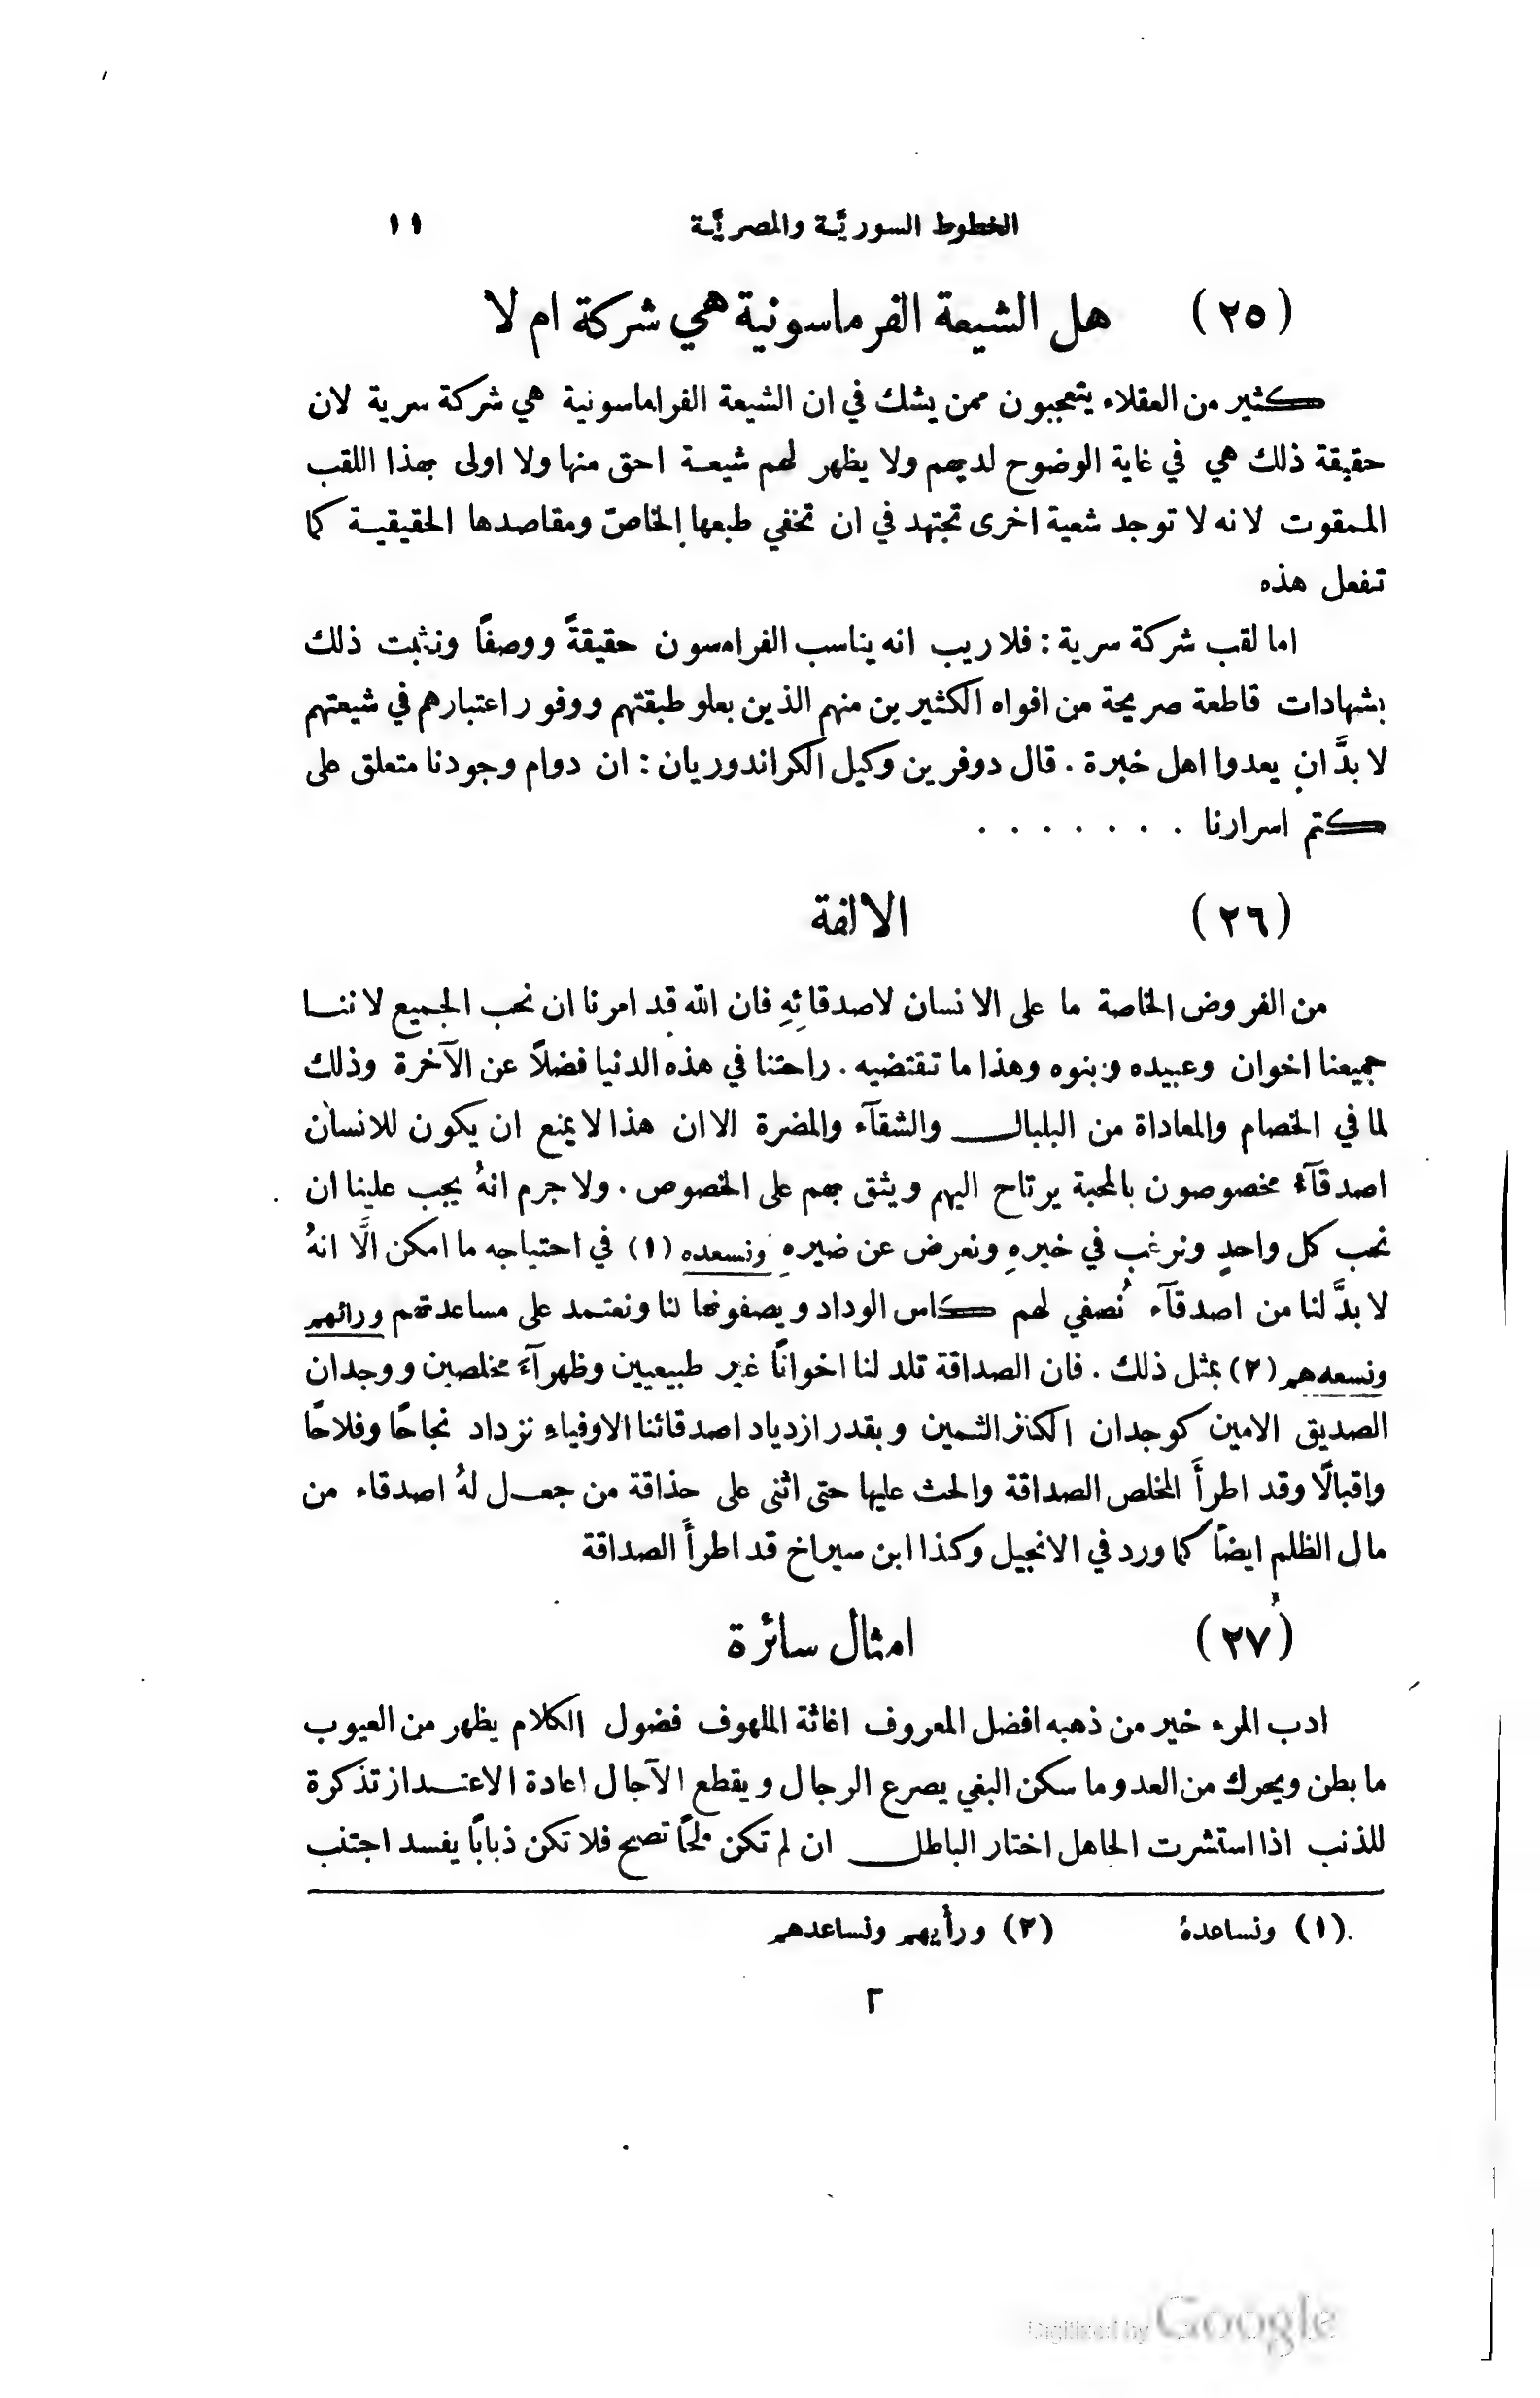 الخطوط السوريَّة والمصريَّة ١١
(٢٥) هل الشيعة الفرماسونية هي شركة ام لا
كثير من العقلاء يتعجبون ممن يشك في ان الشيعة الفراماسونية هي شركة سرية لان
حقيقة ذلك هي في غاية الوضوح لديهم ولا يظهر لهم شيعة احق منها ولا اولى بهذا اللقب
الممقوت لانه لا توجد شعية اخرى تجتهد في ان تخفي طبعها الخاصّ ومقاصدها الحقيقية كما
تفعل هذه
اما لقب شركة سرية : فلا ريب انه يناسب الفرامسون حقيقةً ووصفًا ونثبت ذلك
بشهادات قاطعة صريحة من افواه الكثيرين منهم الذين بعلو طبقتهم ووفور اعتبارهم في شيعتهم
لا بدَّ ان يعدوا اهل خبرة . قال دوفرين وكيل الكراندوريان : ان دوام وجودنا متعلق على
كتم اسرارنا . . . . . . .
(٢٦) الالفة
من الفروض الخاصة ما على الانسان لاصدقائهِ فان الله قد امرنا ان نحب الجميع لاننا
جميعنا اخوان وعبيده وبنوه وهذا ما تقتضيه . راحتنا في هذه الدنيا فضلاً عن الآخرة وذلك
لما في الخصام والمعاداة من البلبال والشقآء والمضرة الا ان هذا لا يمنع ان يكون للانسان
اصدقآءُ مخصوصون بالمحبة يرتاح اليهم ويثق بهم على الخصوص . ولا جرم انهُ يجب علينا ان
نحب كل واحدٍ ونرغب في خيرهِ ونعرض عن ضيرهِ ونسعده (١) في احتياجه ما امكن الَّا انهُ
لا بدَّ لنا من اصدقآء نُصفي لهم كاس الوداد ويصفونها لنا ونعتمد على مساعدتهم ورائهم
ونسعدهم (٢) بمثل ذلك . فان الصداقة تلد لنا اخوانًا غير طبيعيين وظهرآءَ مخلصين ووجدان
الصديق الامين كوجدان الكنز الثمين وبقدر ازدياد اصدقائنا الاوفياء نزداد نجاحًا وفلاحًا
واقبالًا وقد اطرأَ المخلص الصداقة والحث عليها حتى اثنى على حذاقة من جعل لهُ اصدقاء من
مال الظلم ايضًا كما ورد في الانجيل وكذا ابن سيراخ قد اطرأَ الصداقة
(٢٧) امثال سائرة
ادب المرء خير من ذهبه افضل المعروف اغاثة الملهوف فضول الكلام يظهر من العيوب
ما بطن ويحرك من العدو ما سكن البغي يصرع الرجال ويقطع الآجال اعادة الاعتذار تذكرة
للذنب اذا استشرت الجاهل اختار الباطل ان لم تكن ملحًا تصح فلا تكن ذبابًا يفسد اجتنب
(١) ونساعدهُ (٢) ورأْيهم ونساعدهم
٢
Digitized by Google